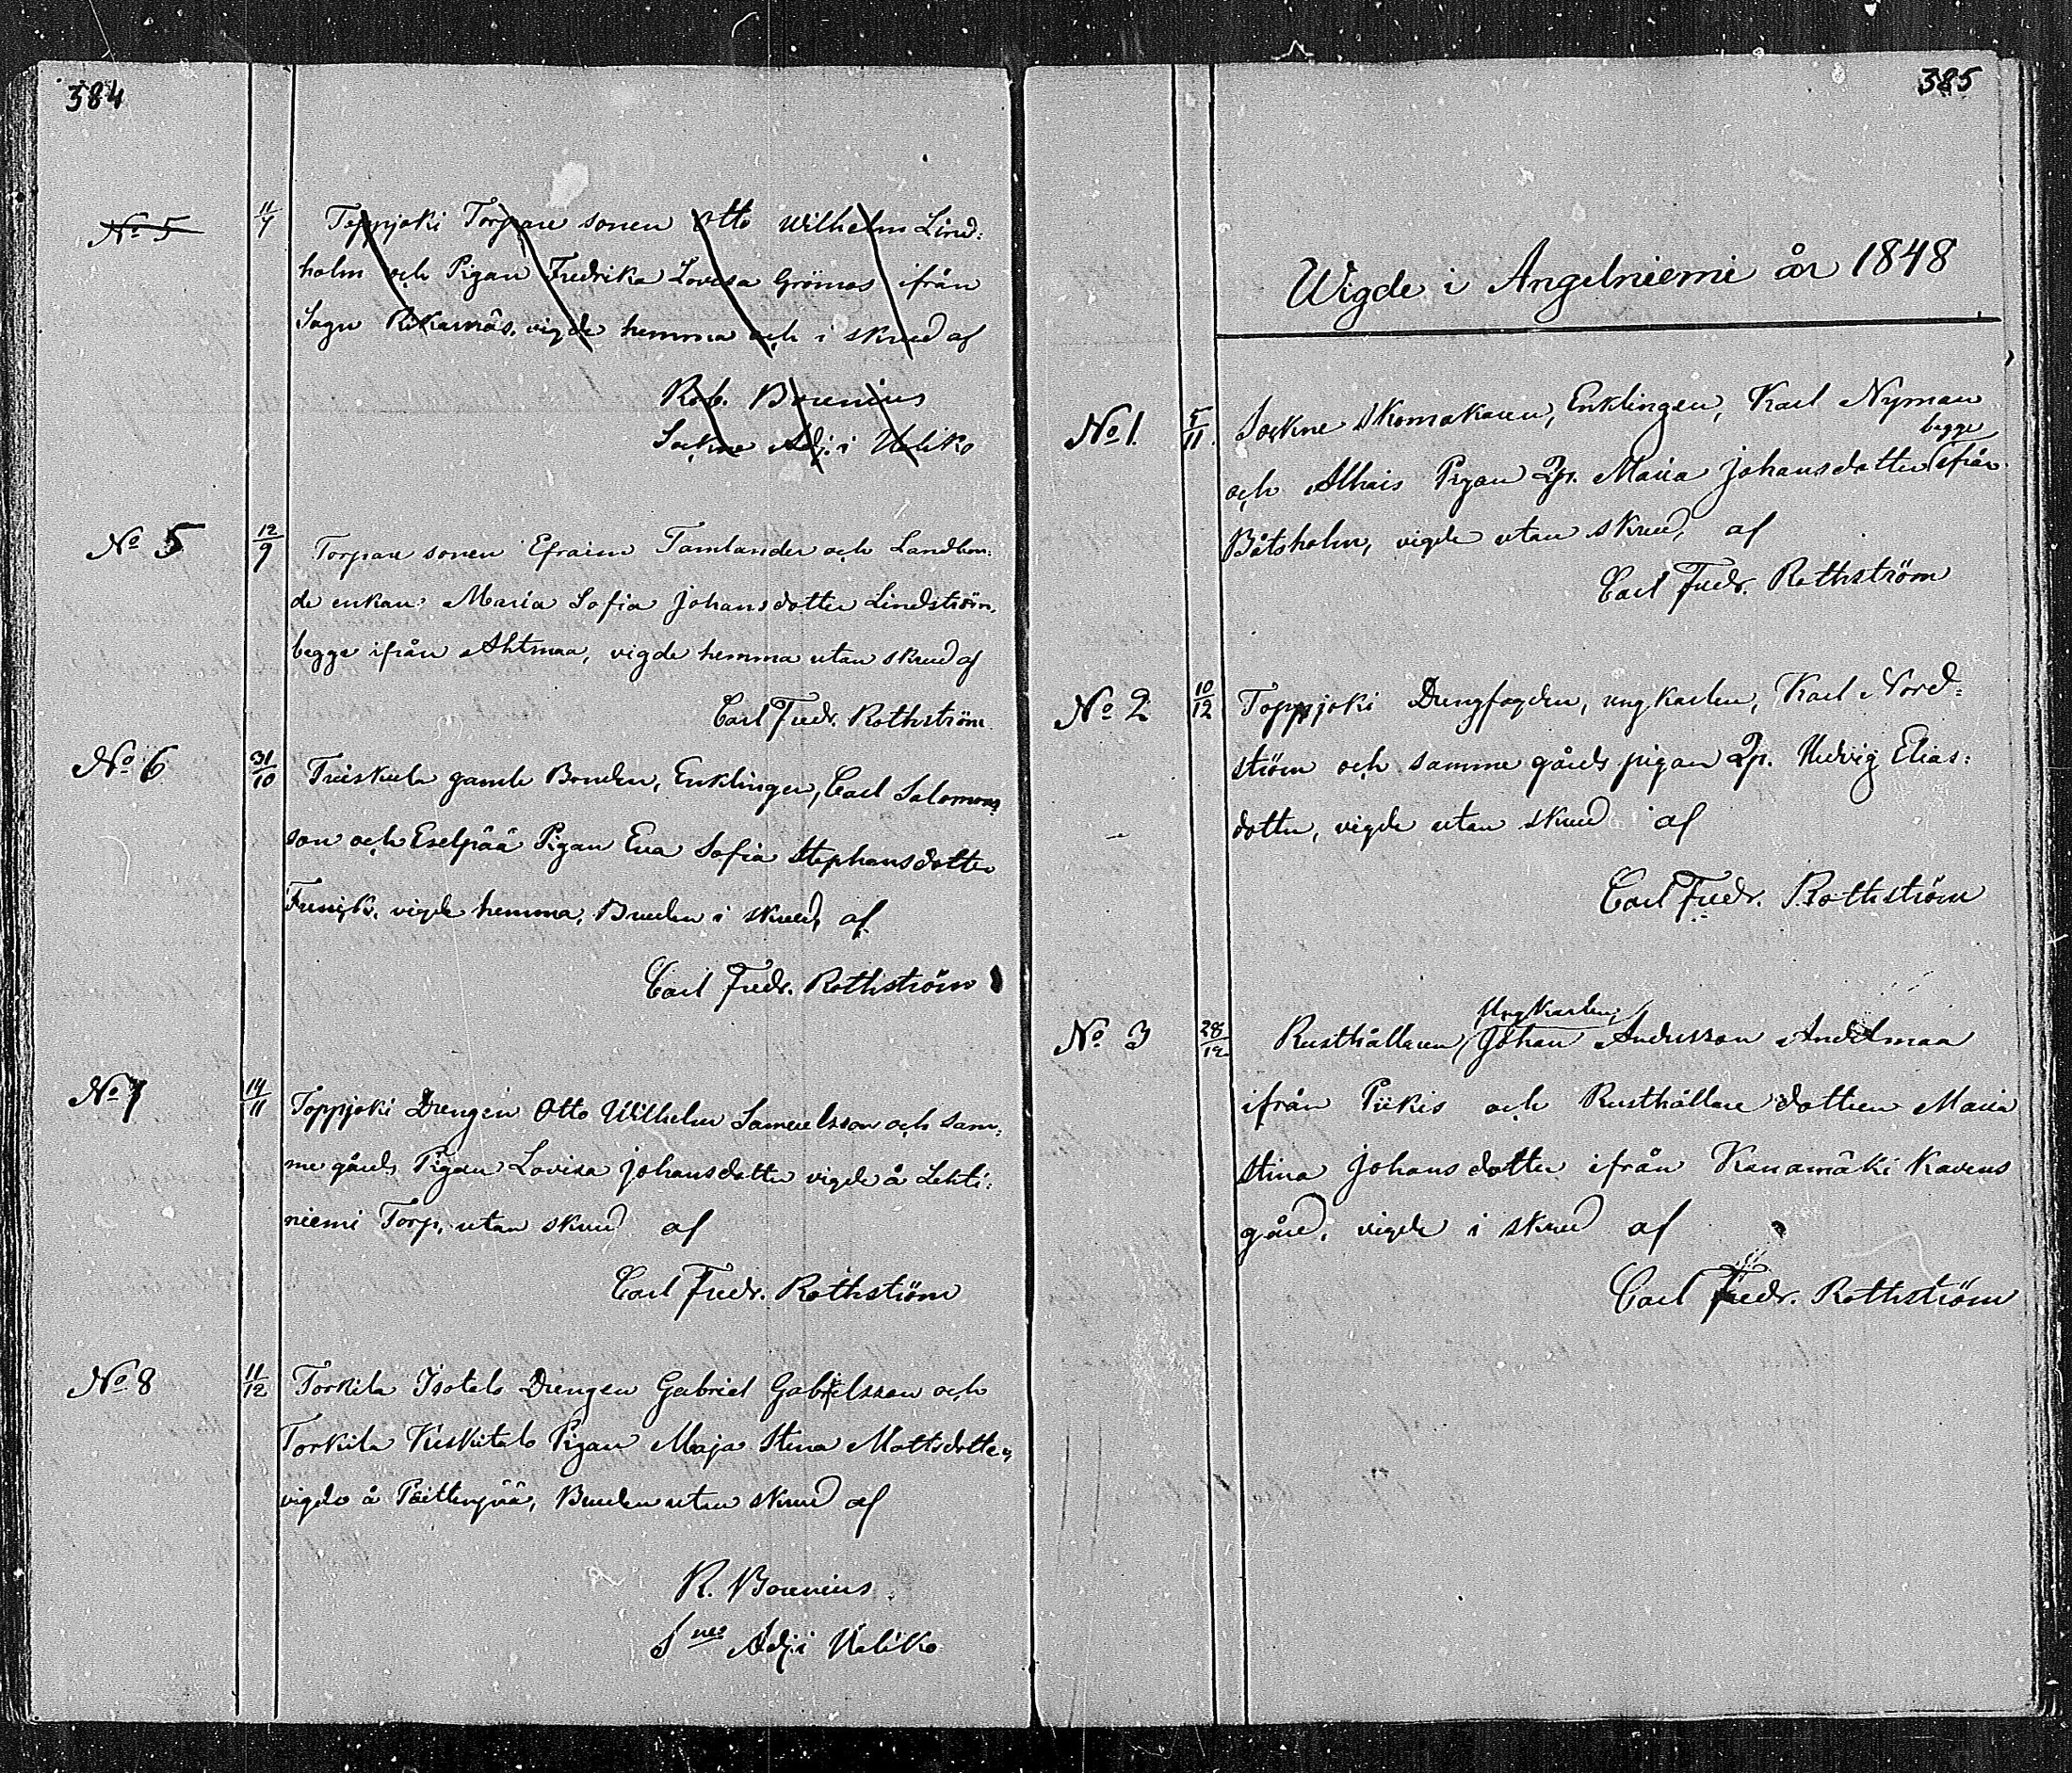 384
No 5 11/7 Toppjoki Torpare sonen Otto Wilhelm Lind:
holm och Pigan Fredrika Lovisa Grönros ifrån
Sagu Rikarnäs, vigde hemma och i skrud af
Rob. Bonenius
Sockne Adj. i Uskiko
No 5 12/9 Torpare sonen Efraim Tamlander och Landbon:
de enkan Maria Sofia Johansdotter Lindström,
begge ifrån Ahtmaa, vigde hemma utan skrud af
Carl Fredr. Rothström
No 6 31/10 Friskula gamle Bonden, Enklingen, Carl Salomons
son och Eselpää Pigan Eva Sofia Stephansdotter
vigde hemma, Bruden i skrud, af
Carl Fredr. Rothström
No 7 14/11 Toppjoki Drengen Otto Wilhelm Samuelsson och sam:
me gårds Pigan Lovisa Johansdotter vigde å Lehti:
niemi Torp, utan skrud af
Carl Fredr. Rothström
No 8 11/12 Torkila Isotalo Drengen Gabriel Gabrielsson och
Torkila Keskitalo Pigan Maja Stina Mattsdotter,
vigde å Bruden utan skrud af
R. Bonenius
Sne Adj. i
385
Wigde i Angelniemi år 1848
No 1. 5/11. Sockne skomakaren, Enklingen, Karl Nyman
begge
och Alhais Pigan Qp. Maria Johansdotter ifrån
Båtsholm, vigde utan skrud, af
Carl Fredr. Rothström
No 2 10/12 Toppjoki Drengfogden, ungkarlen, Karl Nord=
ström och samme gårds pigan Qp. Hedvig Elias:
dotter, vigde utan skrud af
Carl Fredr. Rothström
Ungkarlen,
No 3 28/12 Rusthållaren, Johan Andersson Andelmaa
ifrån Piikis och Rusthållare dottren Maria
Stina Johansdotter ifrån Kanamäki Kavens
gård, vigde i skrud af
Carl Fredr. Rothström